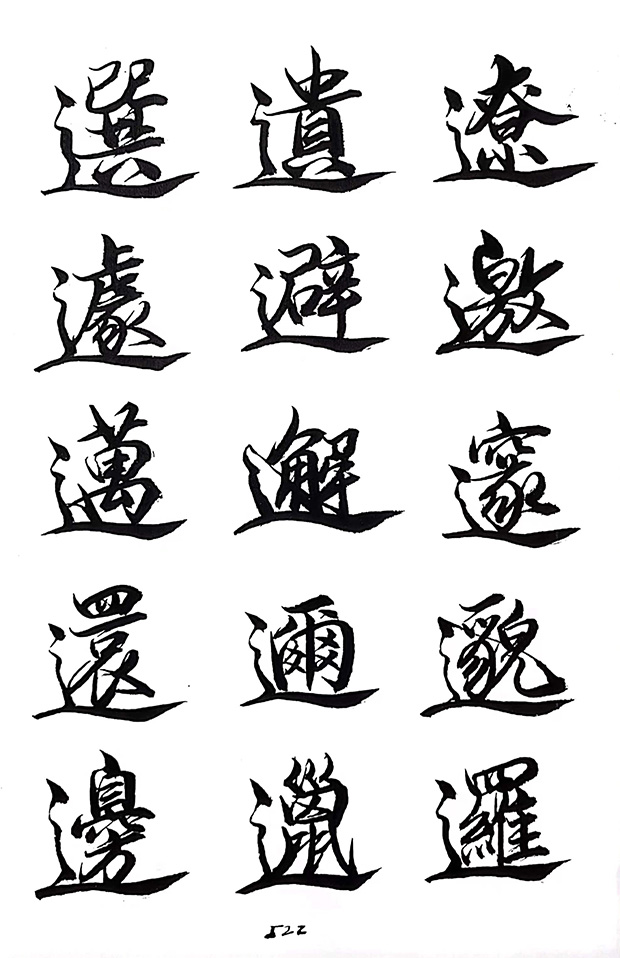 選 遺 遼
遽 避 邀
邁 邂 邃
還 邇 邈
邊 邋 邏
522